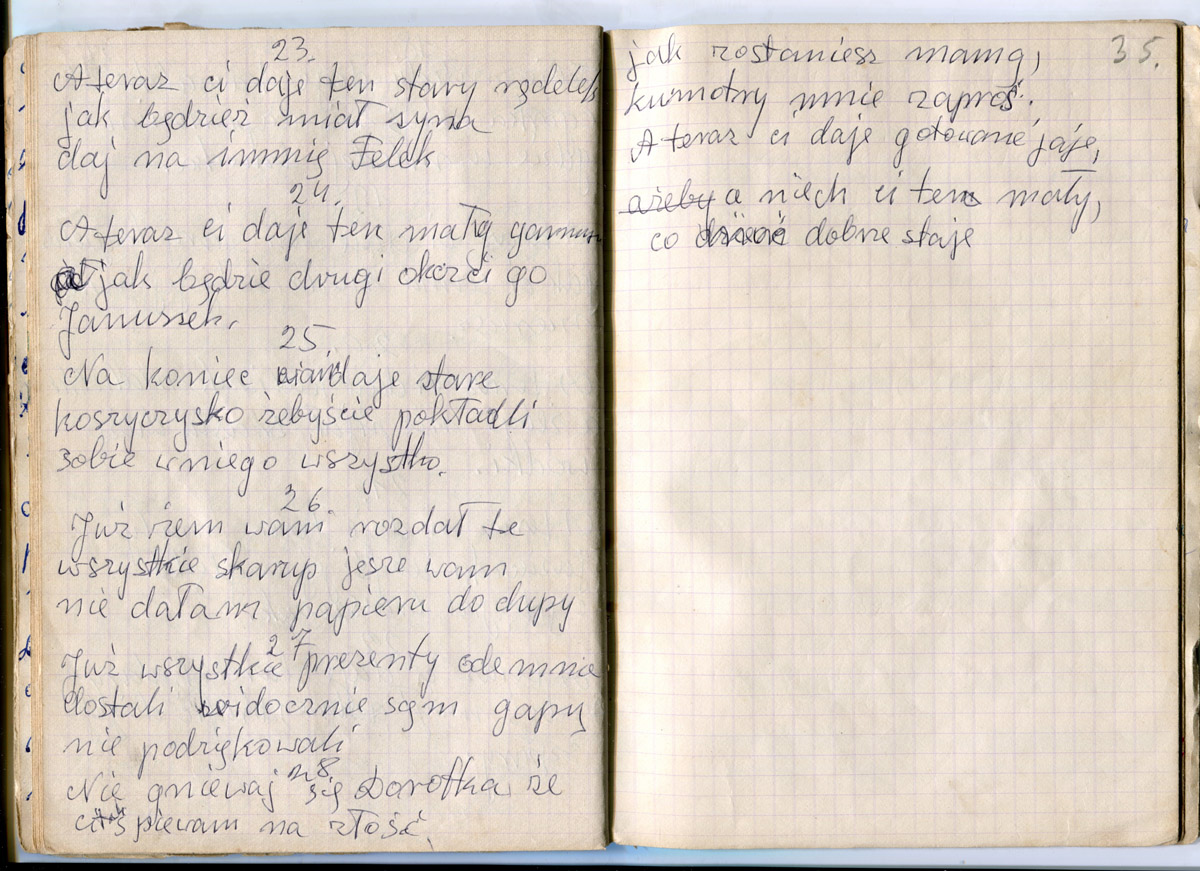 23.
A teraz ci daje ten stary rądelek
jak będzież miał syna
daj na immię Felek
24.
A teraz ci daje ten małg
jak będzie drugi okrzci go
Januszek.
25.
Na koniec daje stare
koszyczysko żebyście pokładli
sobie wniego wszystko.
26.
Już rzem wam rozdał te
wszystkie skarup jesze wam
nie dałam papieru do dupy
27
Już wszystkie prezenty odemnie
dostali widocznie sąm gapy
nie podziękowali
28
Nie gniewaj się Dorotka że
ci tak śpiewam na złość.
35.
jak zostaniesz mamą,
kumotry mnie zaproś.
A teraz ci daje gotowane jaje,
ażeby a niech ci ten mały,
co dobrze staje